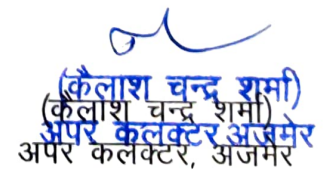 (कैलाश चन्द्र शर्मा)
(कैलाश चन्द्र शर्मा)
अपर कलक्टर अजमेर
अपर कलेक्टर, अजमेर